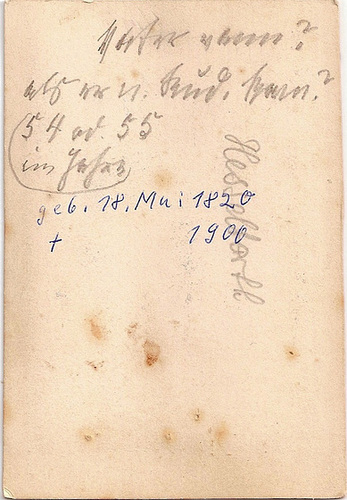 Vater wann?
als er n. Süd. kam.?
54 od. 55
im Jahre
geb. 18. Mai 1820
+ 1900